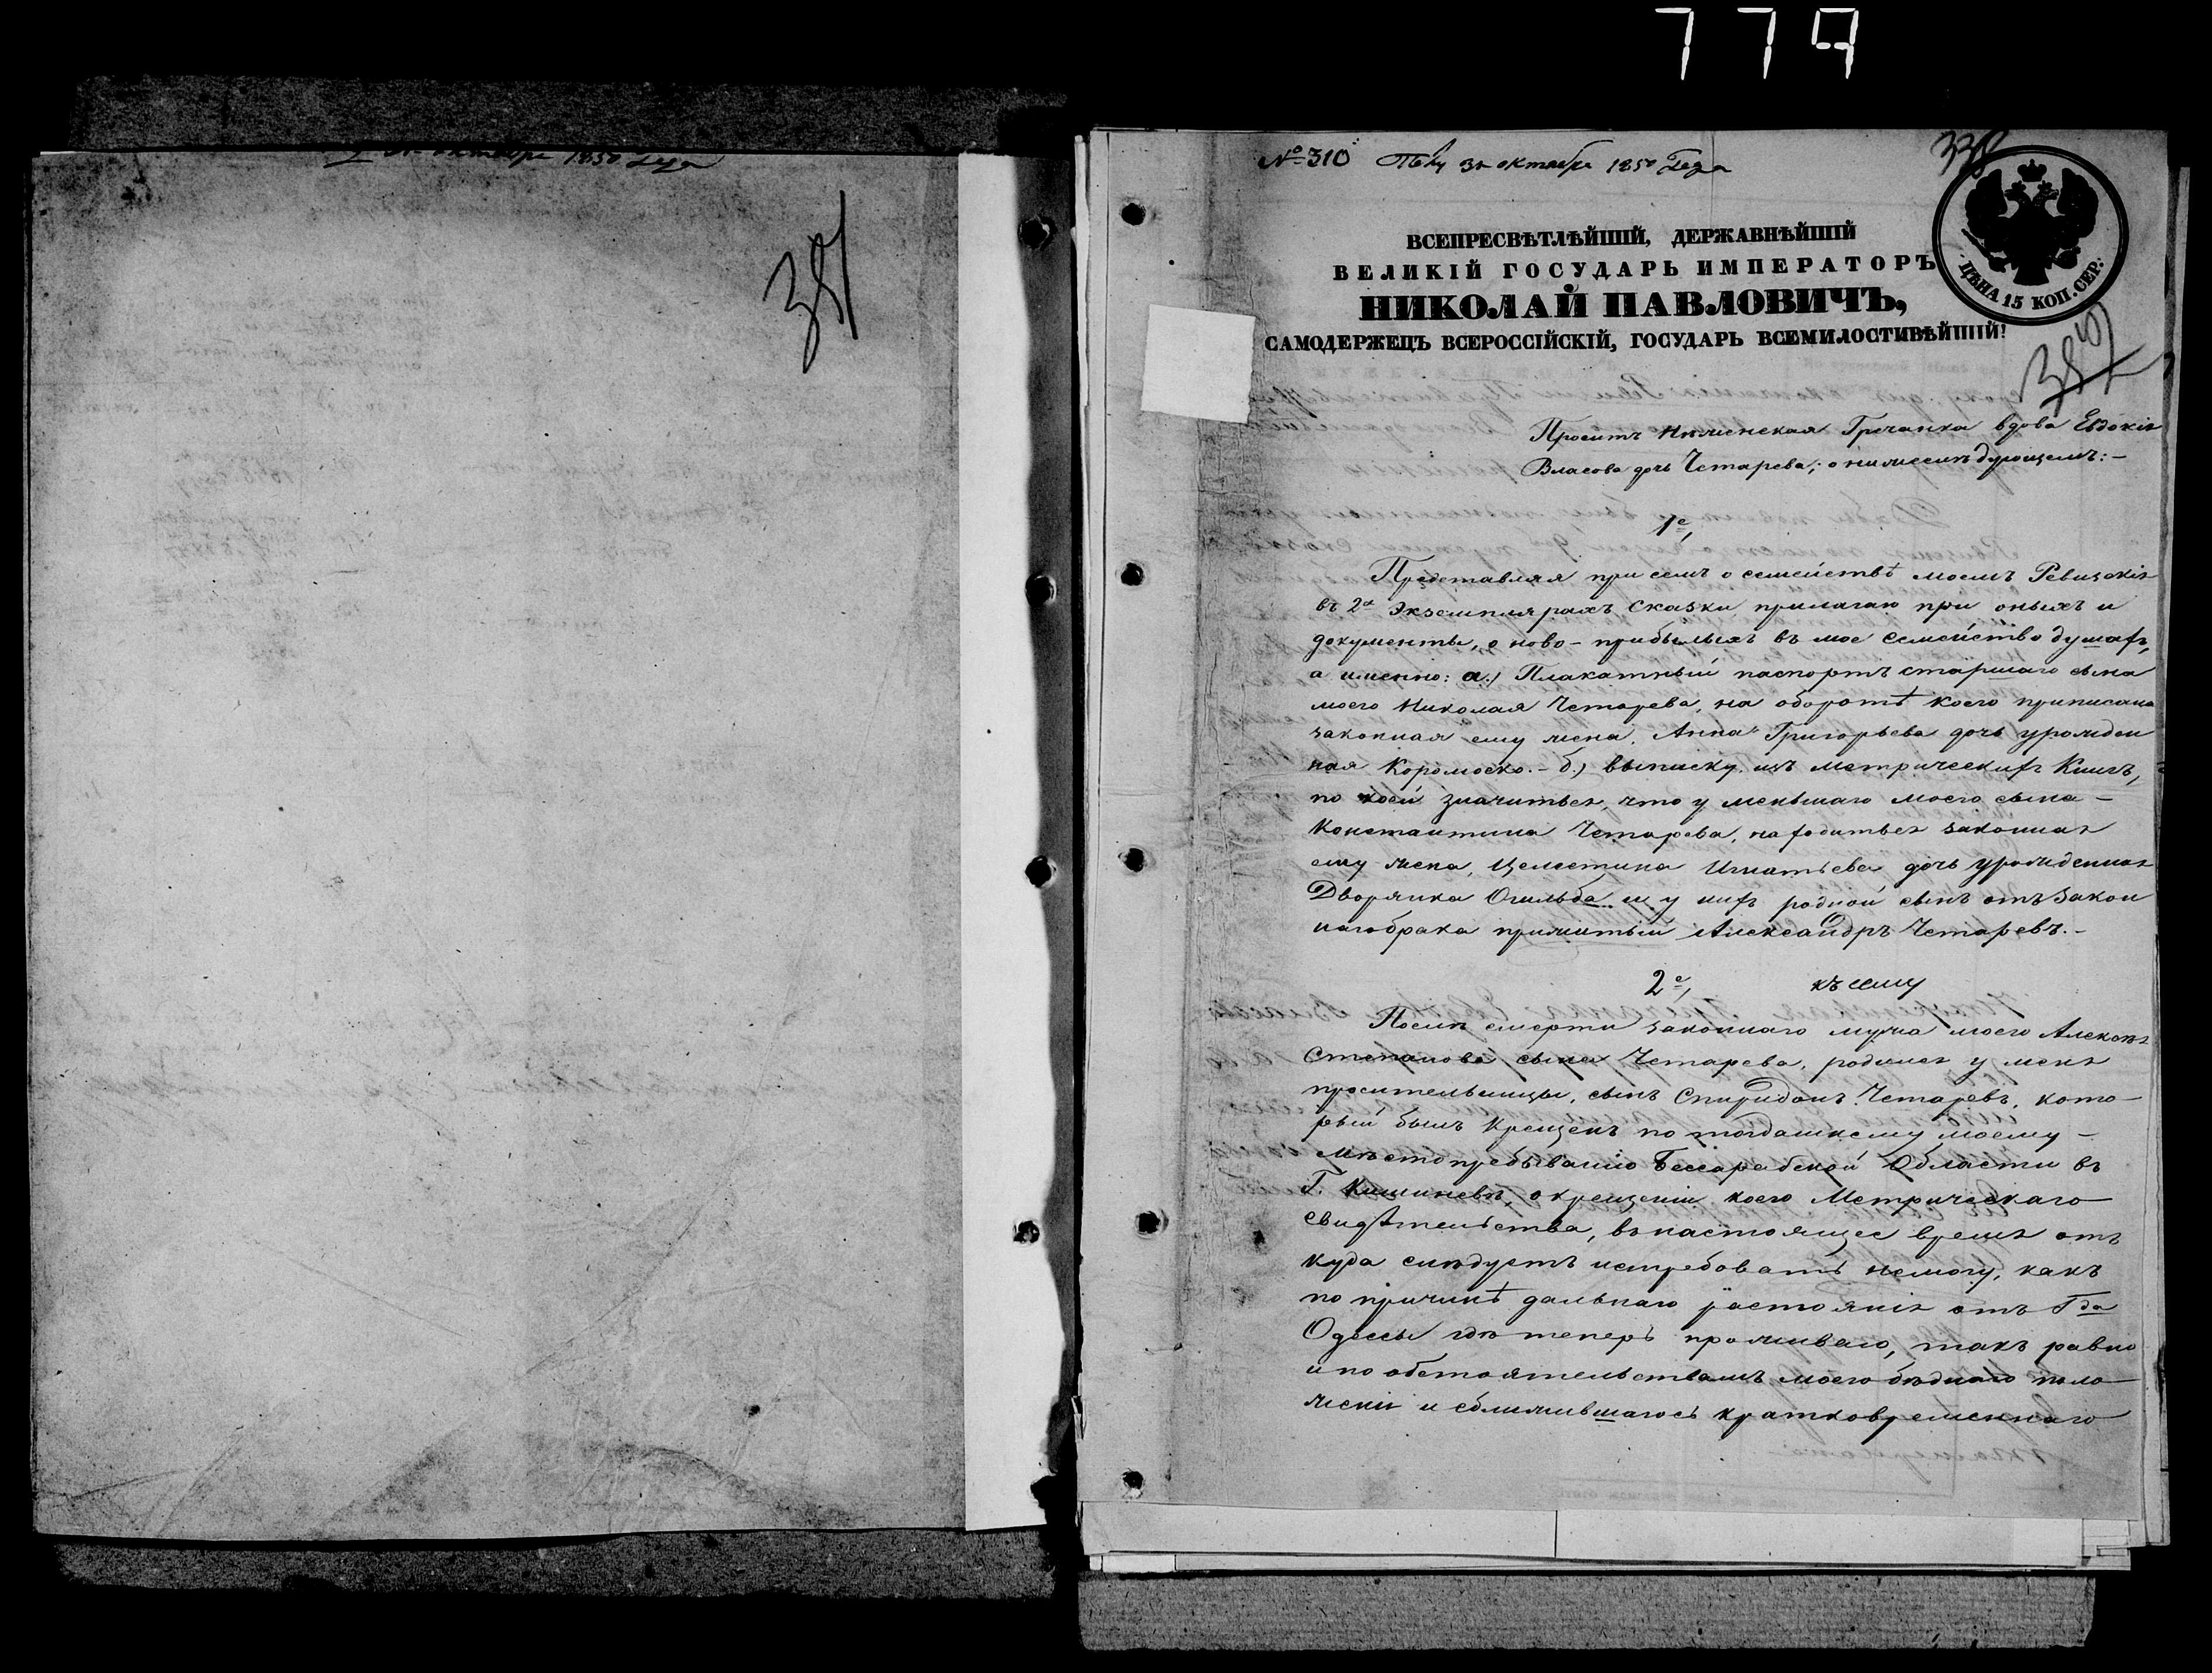 779
31 октября 1850 Года
381
№ 310 31 октября 1850 Года
338
ВСЕПРЕСВѢТЛѢЙШІЙ, ДЕРЖАВНѢЙШІЙ
ВЕЛИКІЙ ГОСУДАРЬ ИМПЕРАТОРЪ
НИКОЛАЙ ПАВЛОВИЧЪ,
САМОДЕРЖЕЦЪ ВСЕРОССІЙСКІЙ, ГОСУДАРЬ ВСЕМИЛОСТИВѢЙШІЙ!
ЦѢНА 15 КОП. СЕР.
382
Проситъ Нѣжинская Гречанка вдова Евдокія
Власова дочь Четарева; о нижеслѣдующемъ:—
1е,
Представляя при семъ о семействѣ моемъ Ревизскія
въ 2х экземплярахъ сказки прилагаю при оныхъ и
документы, о ново-прибылыхъ въ мое семейство душахъ,
а именно: а.) Плакатный паспортъ старшаго сына
моего Николая Четарева, на оборотѣ коего приписана
законная ему жена, Анна Григорьева дочь урожден
ная Коромоско.— б.) выписку изъ метрическихъ Книгъ,
по коей значиться, что у меньшаго моего сына—
Константина Четарева, находиться законная
ему жена, Целестина Игнатьева дочь урожденная
Дворянка Огильба и у нихъ родной сынъ отъ закон
наго брака прижитый Александръ Четаревъ.—
2е, къ сему
Послѣ смерти законнаго мужа моего Алексѣя
Степанова сына Четарева, родился у меня
просительницы, сынъ Спиридонъ Четаревъ, кото—
рый былъ крещенъ по тогдашнему моему—
мѣстопребыванію Бессарабской Области въ
Г. Кишиневѣ, о крещеніи коего Метрическаго
свидѣтельства, въ настоящее время отъ
куда слѣдуетъ истребовать немогу, какъ
по причинѣ дальнаго растоянія отъ Г да
Одессы гдѣ теперь проживаю, такъ равно
и по обстоятельствамъ моего бѣднаго поло
женія и сближившагось кратковременнаго